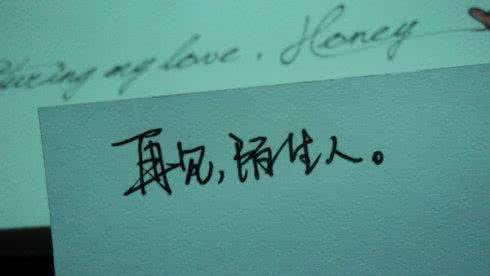 my love. Honey
再见，陌生人。